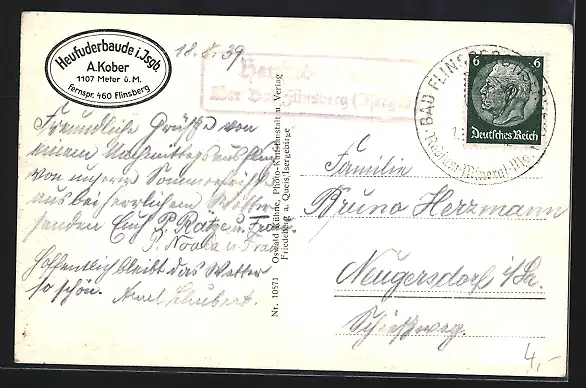 Heufuderbaude i. Jsgb.
A. Kober
1107 Meter ü. M.
Fernspr. 460 Flinsberg
18.8.39
Bad Flinsberg (Iserge
BAD FLINSBERG
6 6
Deutsches Reich
Freundliche Grüße von
einem Nachmittagsausflug
von unserer Sommerfrische
aus bei herrlichem Wetter
senden Euch P. Rätze u. Frau
P. Noack u. Frau
Hoffentlich bleibt das Wetter
so schön.
Schubert.
Nr. 10571 Oswald Kühne, Photo-Kunstanstalt u. Verlag
Friedeberg a. Queis/Isergebirge
Familie
Bruno Herzmann
Neugersdorf i/Sa.
Schießweg.
4,-